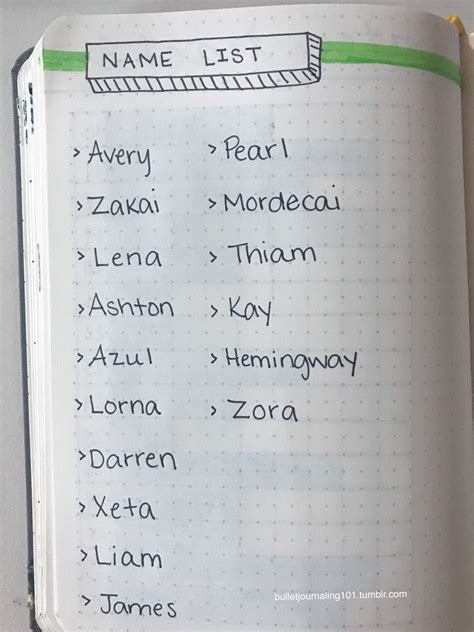 NAME LIST
> Avery
> Zakai
> Lena
> Ashton
> Azul
> Lorna
> Darren
> Xeta
> Liam
> James
> Pearl
> Mordecai
> Thiam
> Kay
> Hemingway
> Zora
bulletjournaling101.tumblr.com